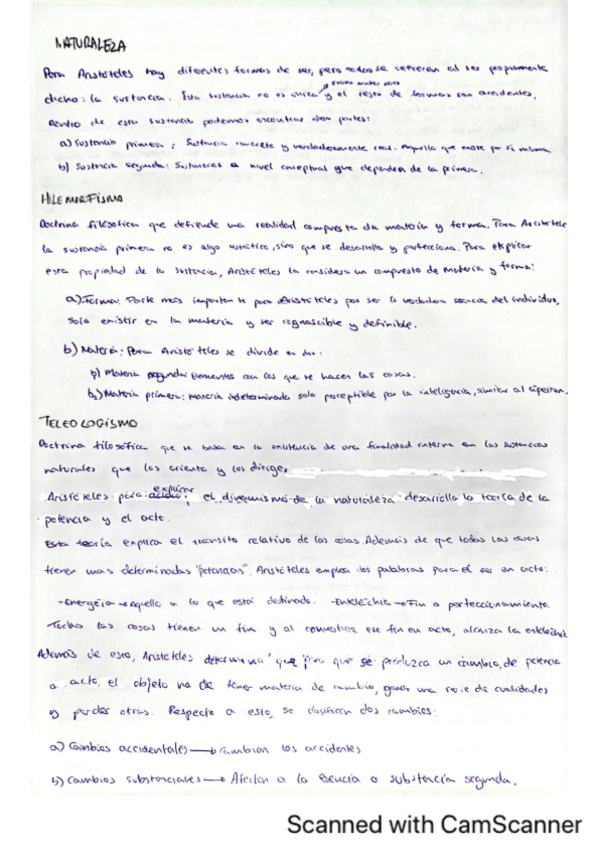 NATURALEZA
Para Aristóteles hay diferentes formas de ser, pero todos se refieren al ser propiamente
dicho: la sustancia. Esta sustancia no es única y el resto de formas son accidentes.
Dentro de esta sustancia podemos encontrar dos partes:
a) Sustancia primera: Sustancia concreta y verdaderamente real. Aquella que existe por si misma.
b) Sustancia segunda: Sustancias a nivel conceptual que dependen de la primera.
HILEMORFISMO
Doctrina filosófica que defiende una realidad compuesta de materia y forma. Para Aristóteles
la sustancia primera no es algo estático, sino que se desarrolla y perfecciona. Para explicar
esta propiedad de la sustancia, Aristóteles la considera un compuesto de materia y forma:
a) Forma: Parte más importante para Aristóteles por ser la verdadera esencia del individuo,
solo existir en la materia y ser cognoscible y definible.
b) Materia: Para Aristóteles se divide en dos:
Materia segunda: elementos con los que se hacen las cosas.
Materia primera: materia indeterminada solo perceptible por la inteligencia, similar al ápeiron.
TELEOLOGISMO
Doctrina filosófica que se basa en la existencia de una finalidad interna en las sustancias
naturales que las orienta y las dirige,
Aristóteles para explicar el dinamismo de la naturaleza desarrolla la teoría de la
potencia y el acto.
Esta teoría explica el tránsito relativo de las cosas. Además de que todas las cosas
tienen unas determinadas "potencias". Aristóteles emplea dos palabras para el ser en acto:
-Energeia → Aquello a lo que está destinado. -Entelechia → Fin o perfeccionamiento.
Todas las cosas tienen un fin y al convertirse ese fin en acto, alcanza la entelechia
Además de eso, Aristóteles determina que para que se produzca un cambio, de potencia
a acto, el objeto ha de tener materia de cambio, ganar una serie de cualidades
y perder otras. Respecto a esto, se clasifican dos cambios:
a) Cambios accidentales → cambian los accidentes
b) Cambios substanciales → Afectan a la esencia o substancia segunda.
Scanned with CamScanner